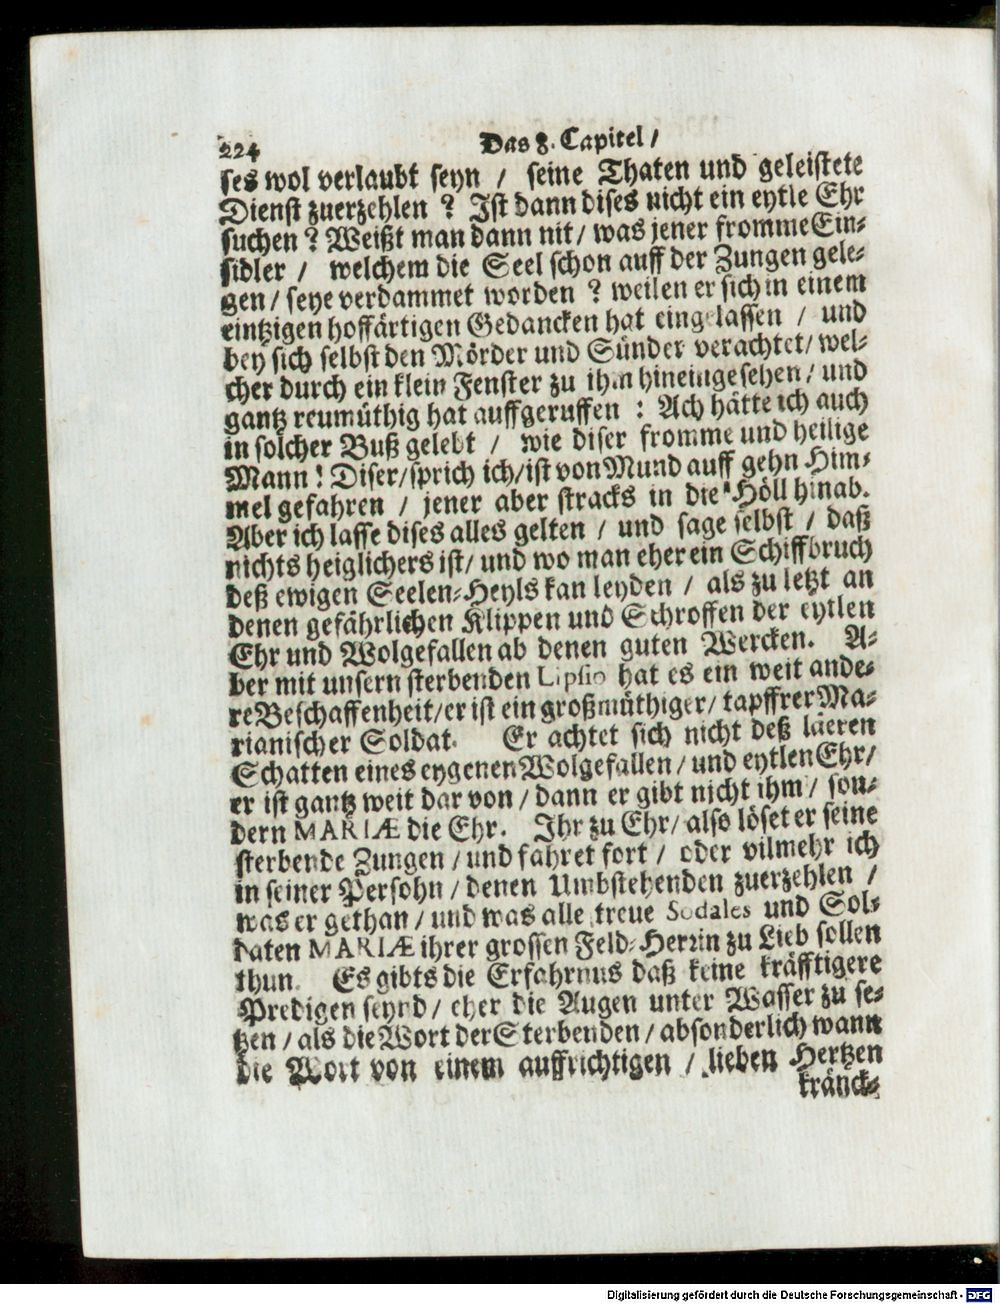 224 Das 8. Capitel /
ses wol verlaubt seyn / seine Thaten und geleistete
Dienst zuerzehlen ? Ist dann dises nicht ein eytle Ehr
suchen ? Weißt man dann nit / was jener fromme Ein-
sidler / welchem die Seel schon auff der Zungen gele-
gen / seye verdammet worden ? weilen er sich in einem
eintzigen hoffärtigen Gedancken hat eingelassen / und
bey sich selbst den Mörder und Sünder verachtet / wel-
cher durch ein klein Fenster zu ihm hineingesehen / und
gantz reumüthig hat auffgeruffen : Ach hätte ich auch
in solcher Buß gelebt / wie diser fromme und heilige
Mann ! Diser / sprich ich / ist von Mund auff gehn Him-
mel gefahren / jener aber stracks in die Höll hinab.
Aber ich lasse dises alles gelten / und sage selbst / daß
nichts heiglichers ist / und wo man eher ein Schiffbruch
deß ewigen Seelen-Heyls kan leyden / als zu letzt an
denen gefährlichen Klippen und Schroffen der eytlen
Ehr und Wolgefallen ab denen guten Wercken. A-
ber mit unsern sterbenden Lipsio hat es ein weit ande-
re Beschaffenheit / er ist ein großmüthiger / tapffrer Ma-
rianischer Soldat. Er achtet sich nicht deß läeren
Schatten eines eygenen Wolgefallen / und eytlen Ehr /
er ist gantz weit darvon / dann er gibt nicht ihm / son-
dern MARIÆ die Ehr. Ihr zu Ehr / also löset er seine
sterbende Zungen / und fahret fort / oder vilmehr ich
in seiner Persohn / denen Umbstehenden zuerzehlen /
was er gethan / und was alle treue Sodales und Sol-
daten MARIÆ ihrer grossen Feld-Herrin zu Lieb sollen
thun. Es gibts die Erfahrnus daß keine kräfftigere
Predigen seynd / eher die Augen unter Wasser zu se-
tzen / als die Wort der Sterbenden / absonderlich wann
die Wort von einem auffrichtigen / lieben Hertzen
kränck-
Digitalisierung gefördert durch die Deutsche Forschungsgemeinschaft - DFG